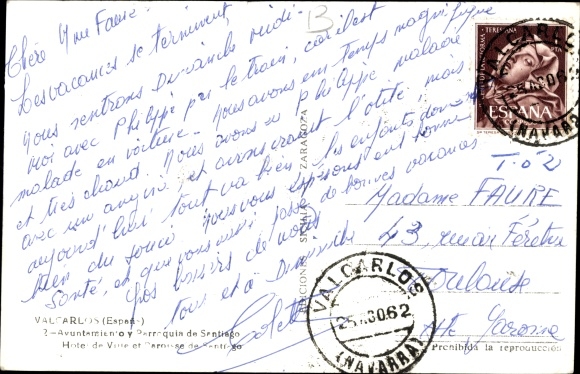 B
Chère Mme Faure.
Les vacances se terminent,
nous rentrons Dimanche
moi avec Philippe par le train, car il est
malade en voiture. Nous avons un temps magnifique
et très chaud. Nous avons eu Philippe malade
avec une angine et aurons vraiment mais
aujourd'hui tout va bien. Les enfants donnent
bien du souci. Nous vous espérons en bonne
santé, et que vous avez passé de bonnes vacances
Bons baisers de nous
tous et à Dimanche
Colette
VALCARLOS (España)
2 - Ayuntamiento y Parroquia de Santiago
Hotel de Ville et Paroisse de Santiago
EDICIONES SICILIA ZARAGOZA
ESPAÑA
VALCARLOS
(NAVARRA)
Madame FAURE
43, rue
Toulouse
Hte Garonne
VALCARLOS
25 AGO 62
(NAVARRA)
Prohibida la reproducción